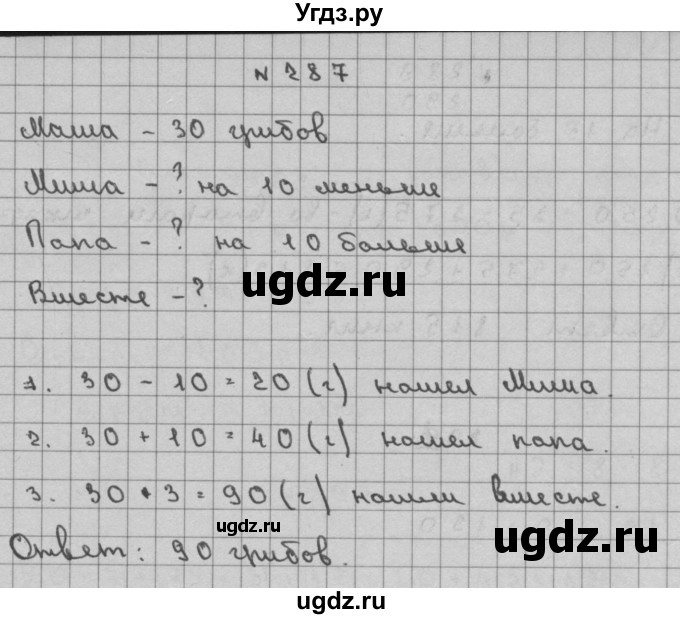 Угдз.ру
N 287
Маша - 30 грибов
Миша - ? на 10 меньше
Папа - ? на 10 больше
ugdz.ru
Вместе - ?
1. 30 - 10 = 20 (г) нашел Миша.
2. 30 + 10 = 40 (г) нашел папа.
3. 30 • 3 = 90 (г) нашли вместе.
ugdz.ru
ugdz.ru
Ответ: 90 грибов.
ugdz.ru